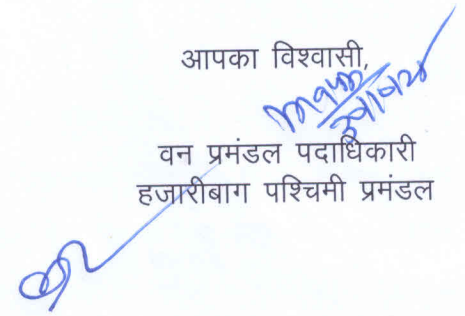 आपका विश्वासी,
वन प्रमंडल पदाधिकारी
हजारीबाग पश्चिमी प्रमंडल